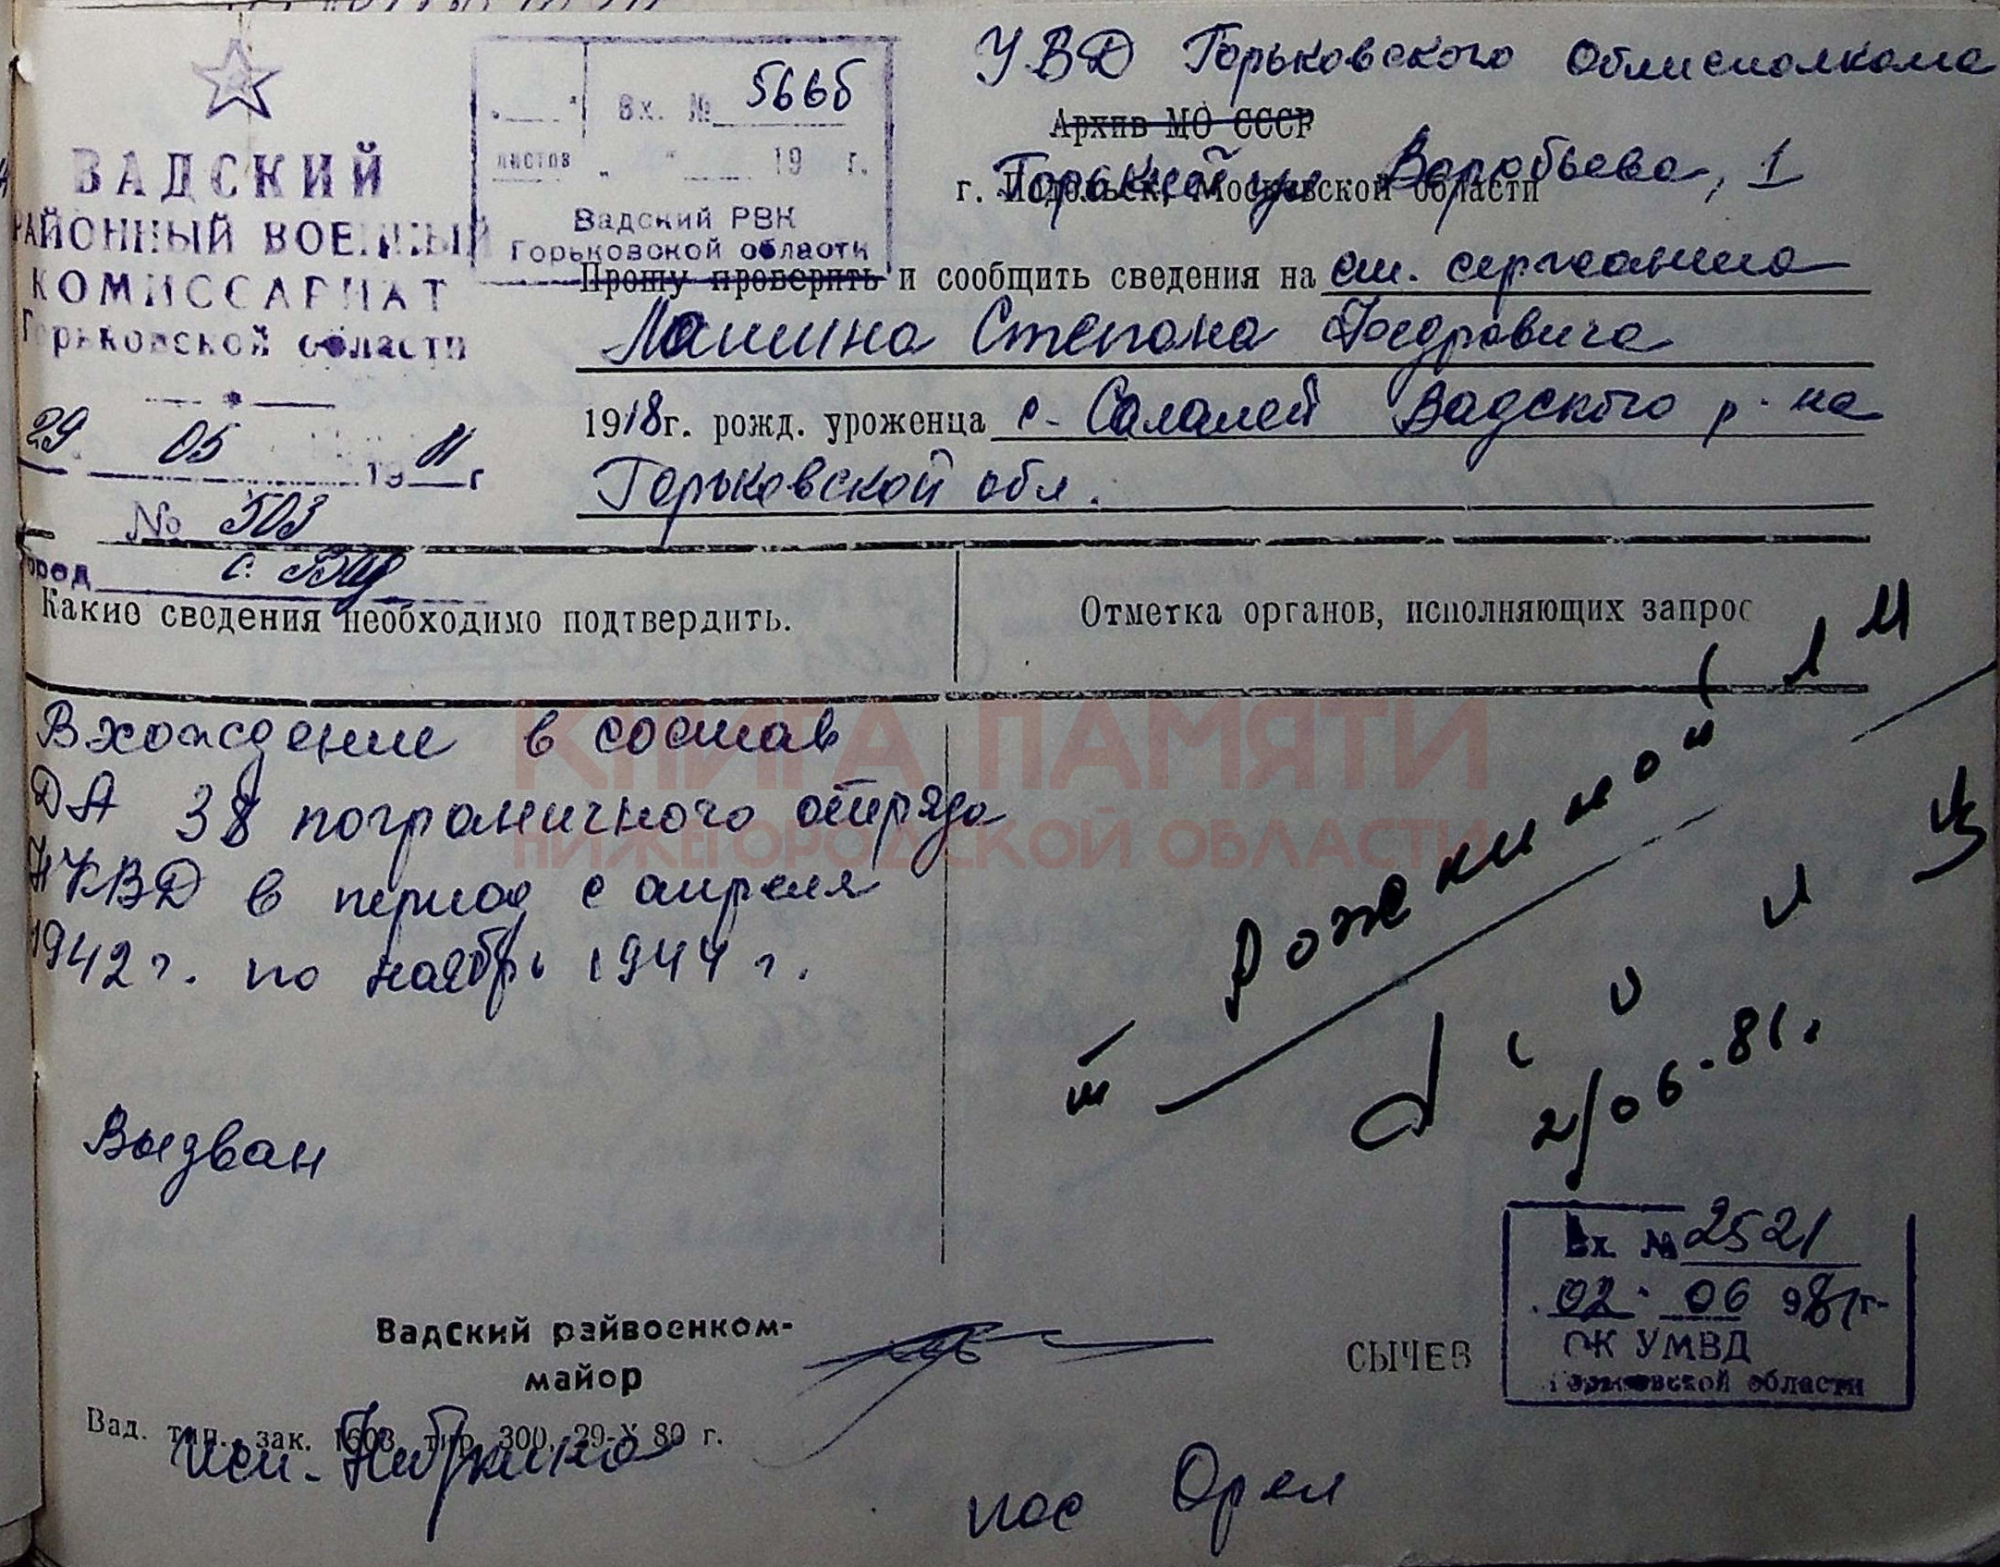 УВД Горьковского Облисполкома
Архив МО СССР
г. Подольск, Московской области
Горький ул Воробьева, 1
Вх. № 5665
листов „ " 19 г.
Вадский РВК
Горьковской области
ВАДСКИЙ
РАЙОННЫЙ ВОЕННЫЙ
КОМИССАРИАТ
Горьковской области
29. 05 19 81 г
№ 503
город с. Вад
Прошу проверить и сообщить сведения на ст. сержанта
Лашина Степана Федоровича
1918г. рожд. уроженца с. Салалей Вадского р-на
Горьковской обл.
Какие сведения необходимо подтвердить.
Отметка органов, исполняющих запрос
Вхождение в состав
ДА 38 пограничного отряда
НКВД в период с апреля
1942 г. по ноябрь 1944 г.
КНИГА ПАМЯТИ
НИЖЕГОРОДСКОЙ ОБЛАСТИ
Рожкиной
2/06-81.
Вызван
Вх № 2521
02. 06 981г-
ОК УМВД
Горьковской области
Вадский райвоенком-
майор
СЫЧЕВ
Вад. тип., зак. 1603 тир. 300. 29-X 80 г.
исп.
пос Орел